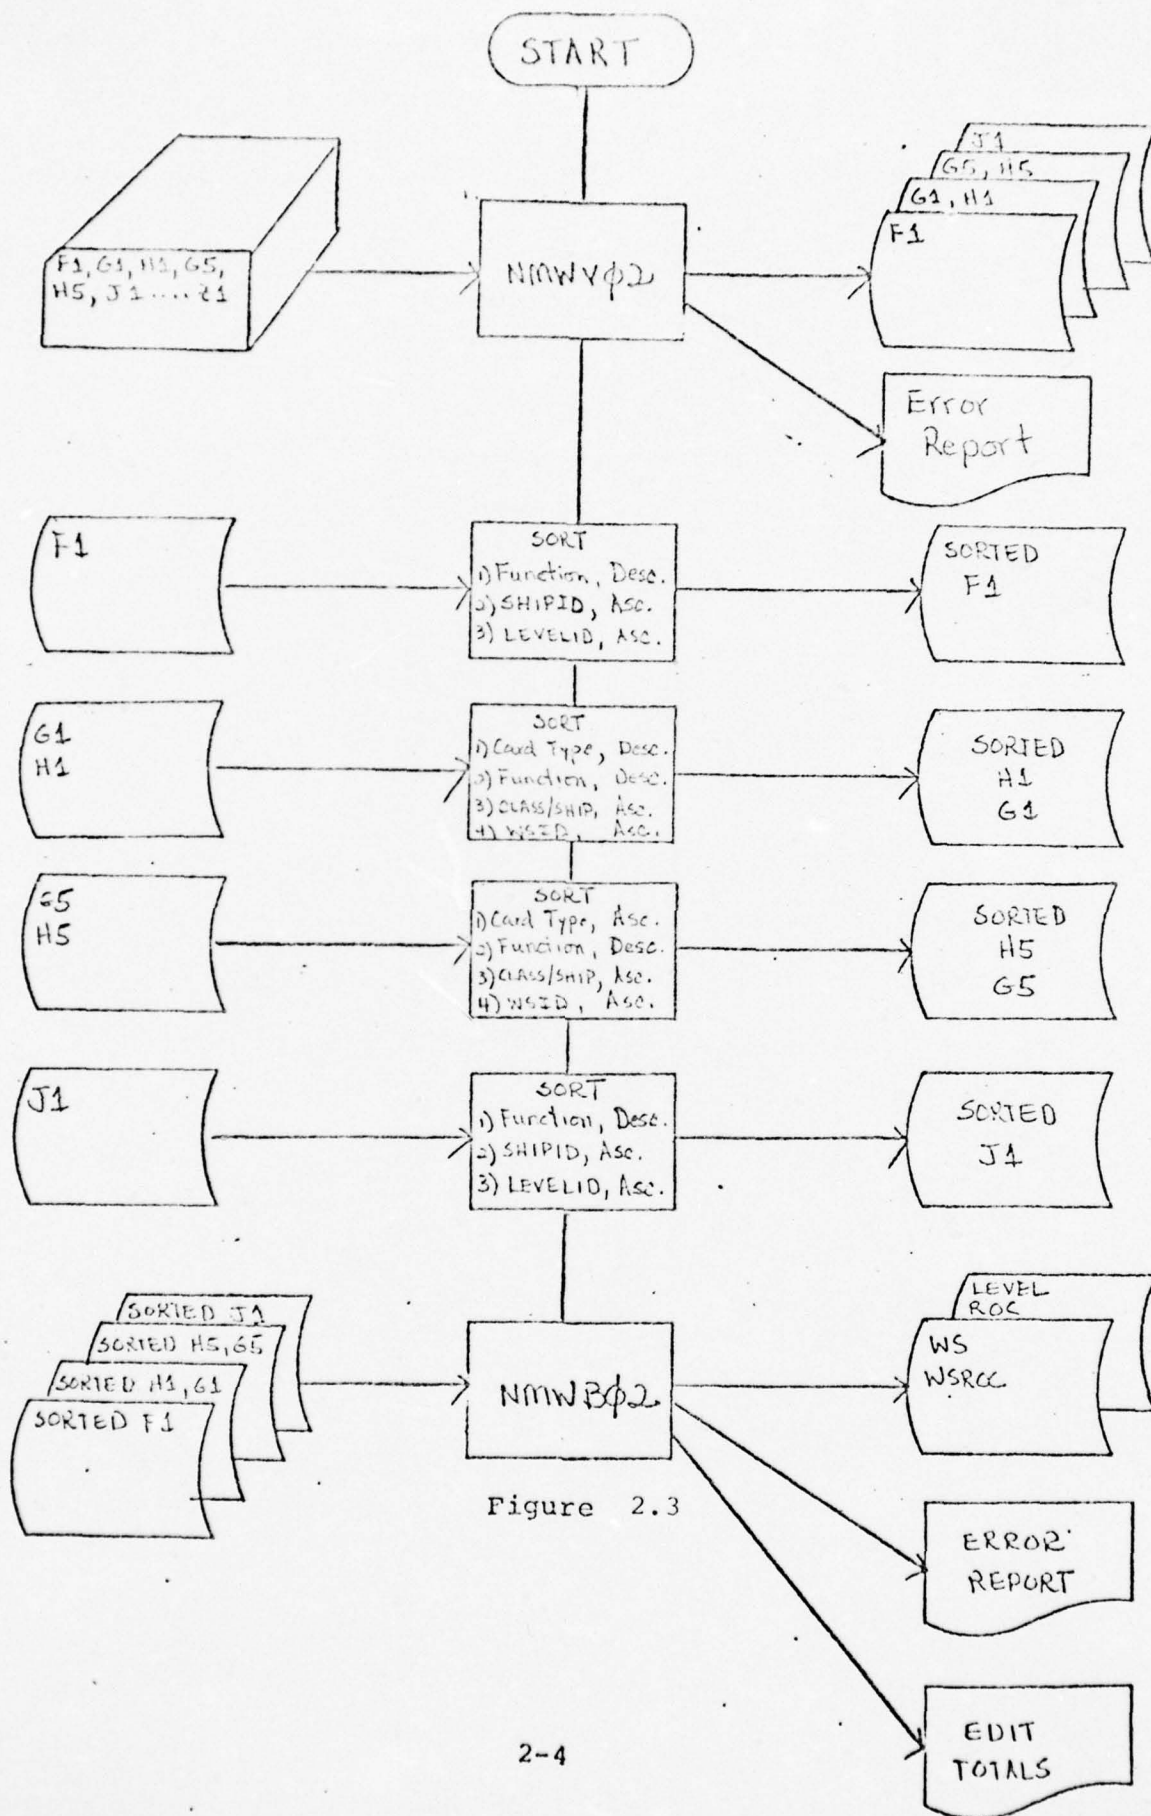 START
F1, G1, H1, G5,
H5, J1 .... Z1
NMWVØ2
J1
G5, H5
G1, H1
F1
Error
Report
F1
SORT
1) Function, Desc.
2) SHIPID, Asc.
3) LEVELID, Asc.
SORTED
F1
G1
H1
SORT
1) Card Type, Desc.
2) Function, Desc.
3) CLASS/SHIP, Asc.
4) WSID, Asc.
SORTED
H1
G1
G5
H5
SORT
1) Card Type, Asc.
2) Function, Desc.
3) CLASS/SHIP, Asc.
4) WSID, Asc.
SORTED
H5
G5
J1
SORT
1) Function, Desc.
2) SHIPID, Asc.
3) LEVELID, Asc.
SORTED
J1
SORTED J1
SORTED H5, G5
SORTED H1, G1
SORTED F1
NMWBØ2
LEVEL
ROC
WS
WSROC
Figure 2.3
ERROR
REPORT
EDIT
TOTALS
2-4